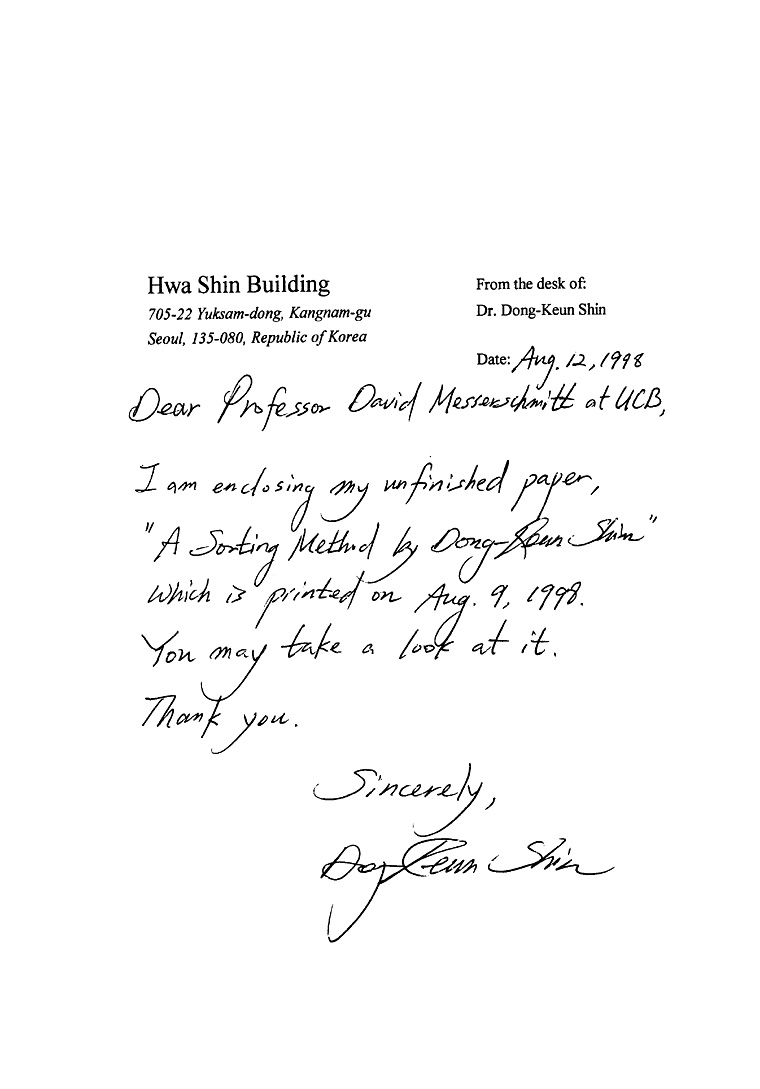 Hwa Shin Building
705-22 Yuksam-dong, Kangnam-gu
Seoul, 135-080, Republic of Korea
From the desk of:
Dr. Dong-Keun Shin
Date: Aug. 12, 1998
Dear Professor David Messerschmitt at UCB,
I am enclosing my unfinished paper,
"A Sorting Method by Dong-Keun Shin"
which is printed on Aug. 9, 1998.
You may take a look at it.
Thank you.
Sincerely,
Dong Keun Shin